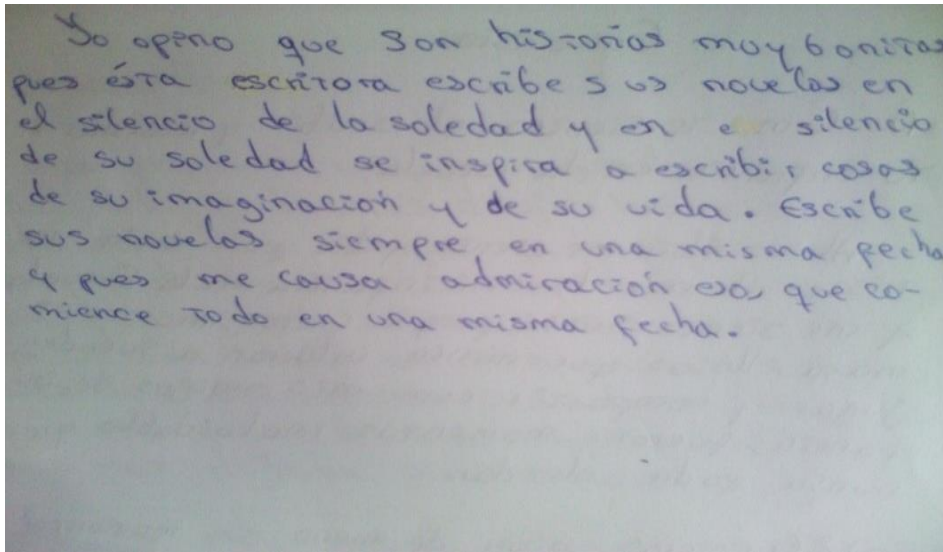 Yo opino que son historias muy bonitas
pues ésta escritora escribe sus novelas en
el silencio de la soledad y en el silencio
de su soledad se inspira a escribir cosas
de su imaginación y de su vida. Escribe
sus novelas siempre en una misma fecha
y pues me causa admiración eso, que co-
mience todo en una misma fecha.